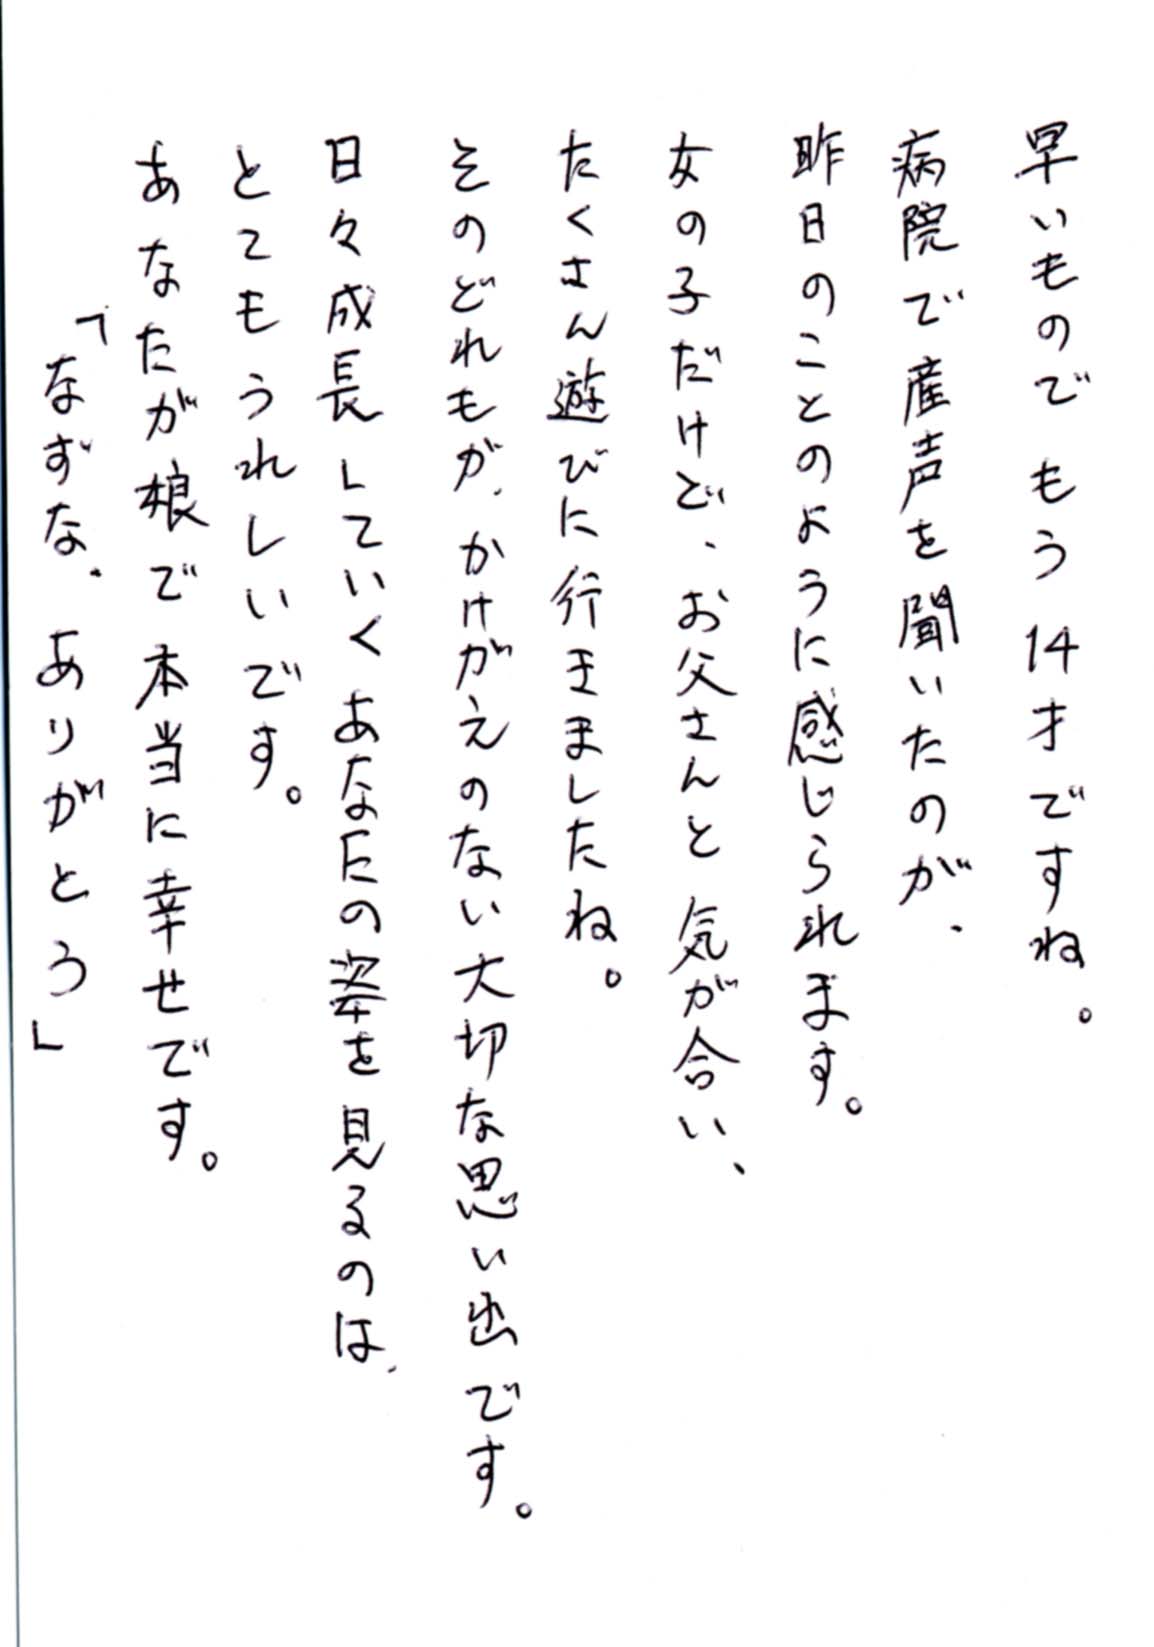 早いもので もう14才ですね。
病院で産声を聞いたのが、
昨日のことのように感じられます。
女の子だけど、お父さんと気が合い、
たくさん遊びに行きましたね。
そのどれもが、かけがえのない大切な思い出です。
日々成長していくあなたの姿を見るのは、
とてもうれしいです。
あなたが娘で本当に幸せです。
「なずな、ありがとう」